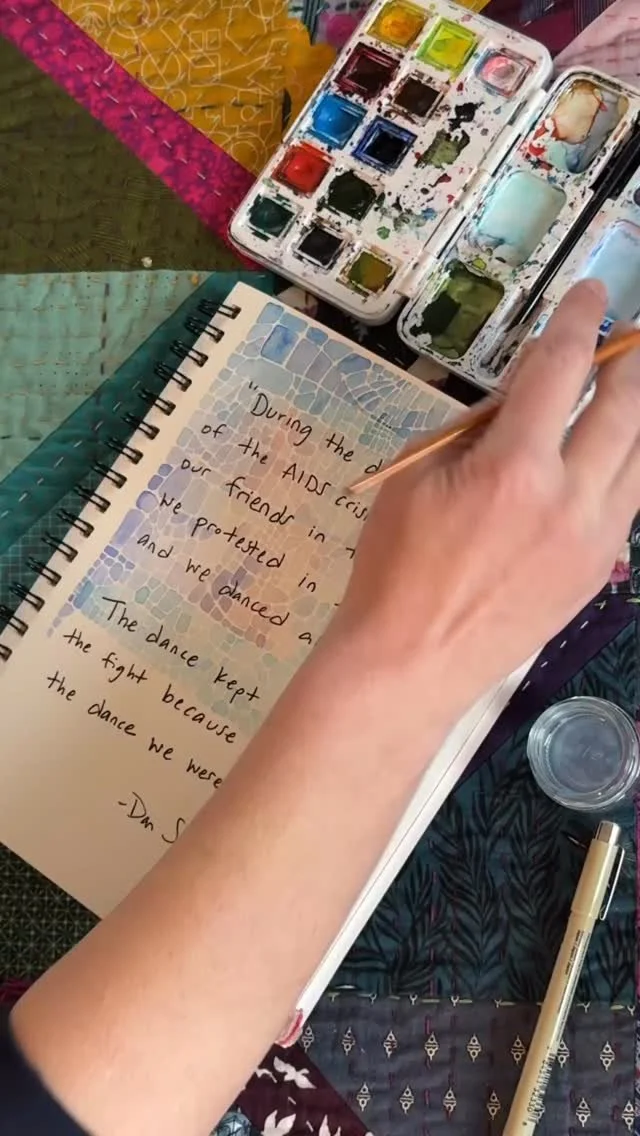 "During the
of the AIDS
our friends in
we protested in
and we danced
The dance kept
the fight because
the dance we were
-Dan